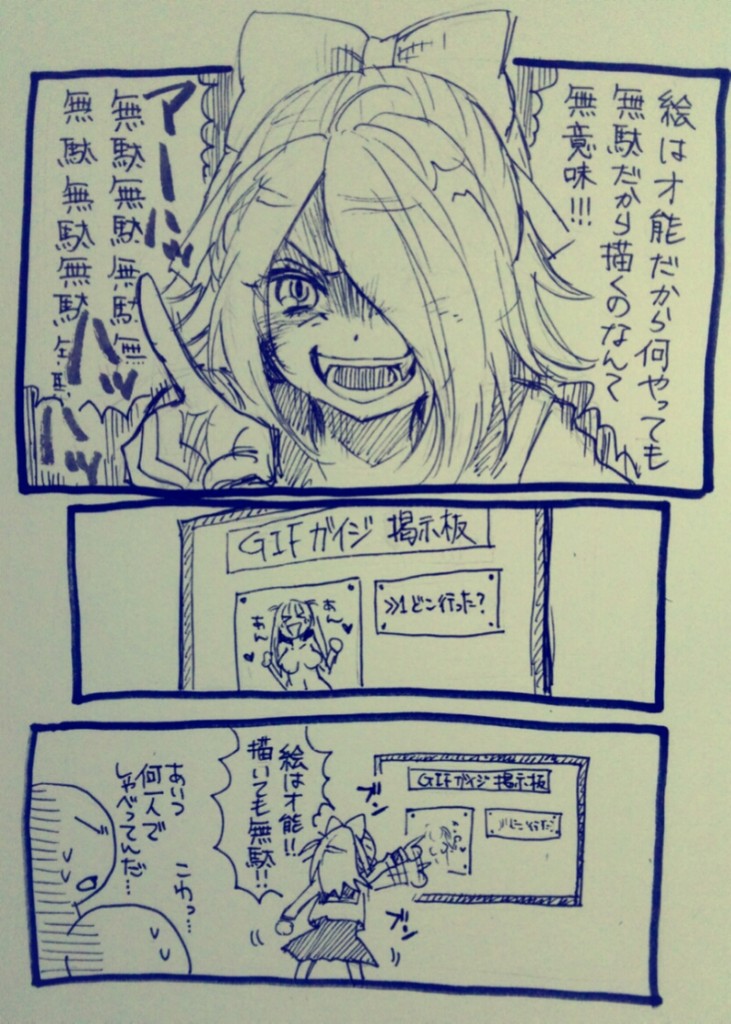 絵は才能だから何やっても
無駄だから描くのなんて
無意味!!!
アーハッハッハッ
無駄無駄無駄無
無駄無駄無駄無駄
GIFガイジ 掲示板
あん
あん
>>1どこ行った?
GIFガイジ 掲示板
ズン
ズン
絵は才能!!
描いても無駄!!
あいつ
何一人で
しゃべってんだ…
こわっ…